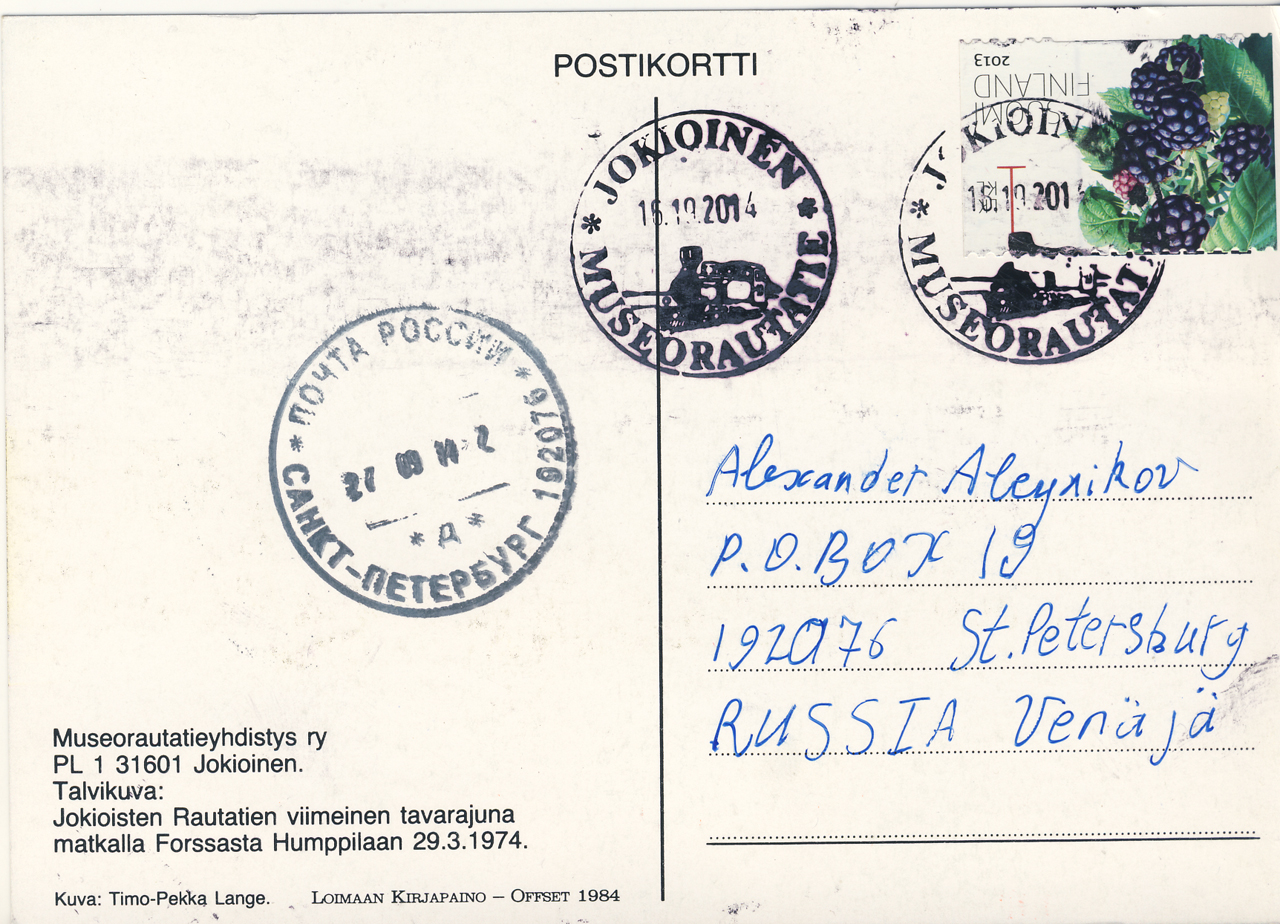 POSTIKORTTI
2013
SUOMI
FINLAND
JOKIOINEN
16.10.2014
* MUSEORAUTATIE *
JOKIOINEN
16.10.2014
* MUSEORAUTATIE
* ПОЧТА РОССИИ *
* Д *
САНКТ-ПЕТЕРБУРГ 192076
Alexander Aleynikov
P.O.BOX 19
192076 St.Petersburg
RUSSIA Venäjä
Museorautatieyhdistys ry
PL 1 31601 Jokioinen.
Talvikuva:
Jokioisten Rautatien viimeinen tavarajuna
matkalla Forssasta Humppilaan 29.3.1974.
Kuva: Timo-Pekka Lange. LOIMAAN KIRJAPAINO – OFFSET 1984